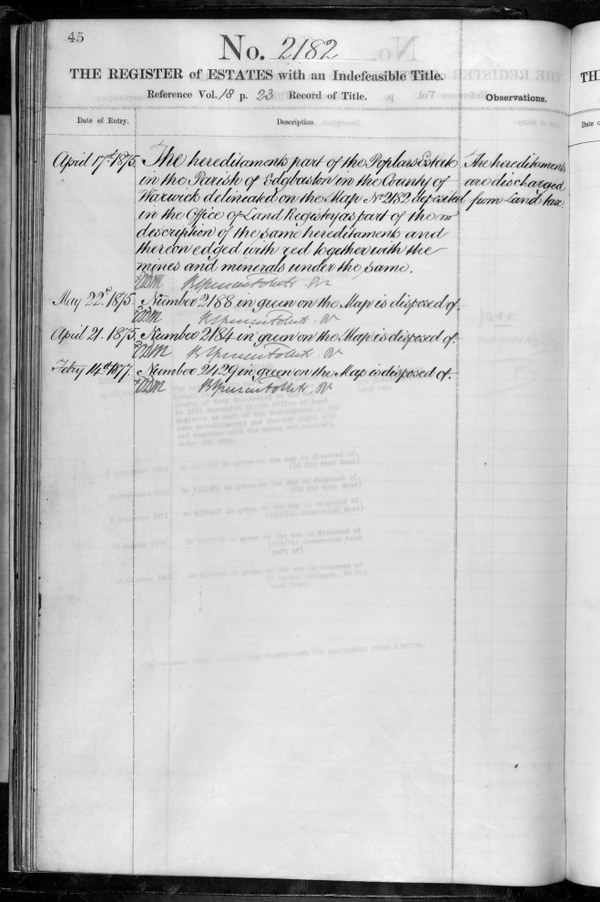 45
No. 2182
THE REGISTER of ESTATES with an Indefeasible Title.
Reference Vol. 18 p. 23 Record of Title.
Observations.
Date of Entry.
Description
April 17th 1875. The hereditaments part of the Poplars Estate
in the Parish of Edgbaston in the County of
Warwick delineated on the Map No 2182 deposited
in the Office of Land Registry as part of the
description of the same hereditaments and
thereon edged with red together with the
mines and minerals under the same.
The hereditaments
are discharged
from Land tax.
May 22d 1875. Number 2188 in green on the Map is disposed of.
April 21. 1875. Number 2184 in green on the Map is disposed of.
Febry 14th 1877. Number 2429 in green on the Map is disposed of.
TH
Date o